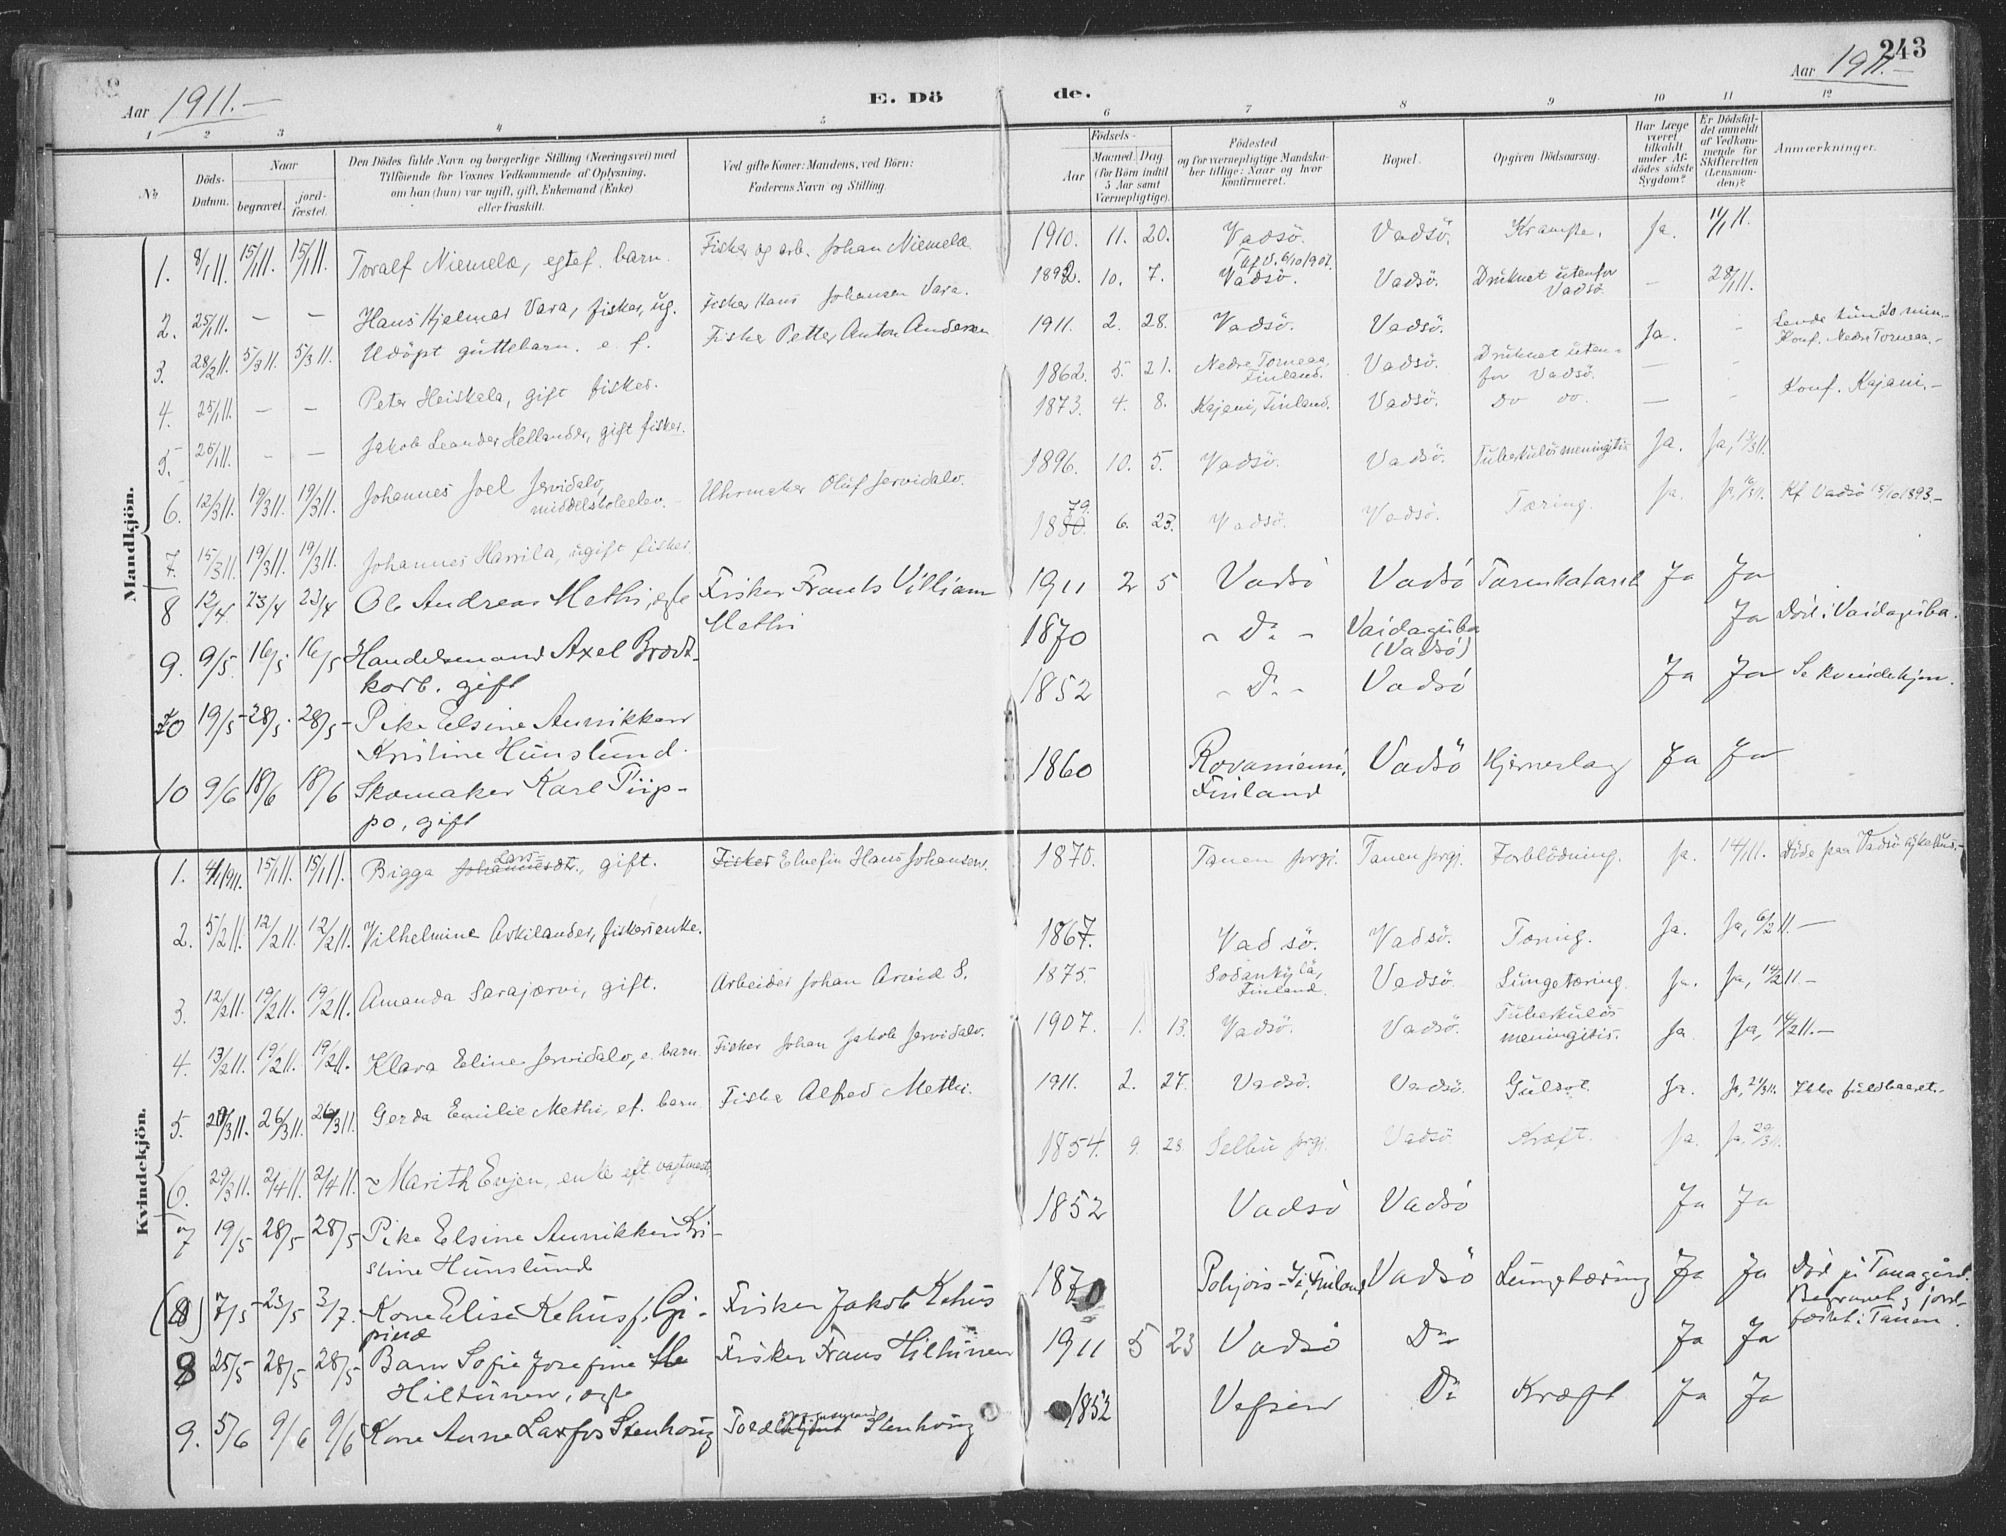 243
Aar 1911.—
E. Dö de.
Aar 1911.—
1 2 3 4 5 6 7 8 9 10 11 12
No
Döds-
Datum.
Naar
begravet.
jord-
fæstet.
Den Dödes fulde Navn og borgerlige Stilling (Næringsvei) med
Tilföiende for Voxnes Vedkommende af Oplysning,
om han (hun) var ugift, gift, Enkemand (Enke)
eller fraskilt.
Ved gifte Koner: Mandens, ved Börn:
Faderens Navn og Stilling.
Födsels-
Aar
Maaned. Dag.
(for Börn indtil
5 Aar samt
Værnepligtige).
Födested
og for værnepligtige Mandska-
ber tillige: Naar og hvor
konfirmeret.
Bopæl.
Opgiven Dödsaarsag.
Har Læge
været
tilkaldt
under Af-
dödes sidste
Sygdom?
Er Dödsfal-
det anmeldt
af Vedkom-
mende for
Skifteretten
(Lensman-
den)?
Anmærkninger.
Mandkjön.
1. 8/1 11. 15/1 11. 15/1 11. Toralf Niemela, egtef. barn. Fisker og arb. Johan Niemela. 1910. 11. 20. Vadsö. Vadsö. Krampe. Ja. 11/1 11.
2. 25/1 11. — — Hans Hjelmar Vara, fisker, ug. Fisker Hans Johansen Vara. 1892. 10. 7. Vadsö. Vadsö. Druknet utenfor — 28/1 11.
Vadsö.
3. 28/2 11. 5/3 11. 5/3 11. Udöpt guttebarn. e. f. Fisker Petter Anton Andersen 1911. 2. 28. Vadsö. Vadsö. Ja. -
4. 25/1 11. — — Peter Heiskela, gift fisker. 1862. 5. 21. Nedre Torneaa, Vadsö. Druknet uten- — Konf. Nedre Torneaa.-
Finland. for Vadsö.
5. 25/1 11. — — Jakob Leander Hellander, gift fisker. 1873. 4. 8. Kajani, Finland. Vadsö. Do do. — Konf. Kajani.-
6. 12/3 11. 19/3 11. 19/3 11. Johannes Joel Jervidalo, Uhrmaker Oluf Jervidalo. 1896. 10. 5. Vadsö. Vadsö. Tuberkulös meningitis Ja. Ja, 13/3 11.
middelskoleelev.-
7. 15/3 11. 19/3 11. 19/3 11. Johannes Harrila, ugift fisker. 1880. 79. 6. 23. Vadsö. Vadsö. Tæring. Ja. Ja, 16/3 11. Kf Vadsö 15/10 1893.-
8 12/4 23/4 23/4 Ole Andreas Methi, egte Fisker Frants Villiam 1911 2 5 Vadsö Vadsö Tarmkatarrh Ja Ja
Methi
9. 9/5 16/5. 16/5 Handelsmand Axel Brodt- 1870 - Do - Vaidaguba Ja Död i Vaidaguba.
korb. gift (Vadsö)
10 19/5 28/5. 28/5 Pike Elsine Annikken 1852 - Do - Vadsö Ja Ja Se kvindekjøn.
Kristine Hunslund.
10 9/6 18/6 18/6 Skomaker Karl Piip- 1860 Rovaniemi, Vadsö Hjerneslag Ja Ja
po, gift Finland
Kvindekjön.
1. 4/1 1911. 15/1 11. 15/1 11. Bigga Johannesdt. Lars-, gift. Fisker Elvefin Hans Johansen. 1870. Tanen prgj. Tanen prgj. Forblödning. Ja. 14/1 11. Döde paa Vadsö sykehus.-
2. 5/2 11. 12/2 11. 12/2 11. Vilhelmine Askilander, fiskerenke. 1867. Vadsö. Vadsö. Tæring. Ja. Ja, 6/2 11. —
3. 12/2 11. 19/2 11. 19/2 11. Amanda Sarajærvi, gift. Arbeider Johan Arvid S. 1875. Sodankylä, Vadsö. Lungetæring. Ja. Ja, 14/2 11.—
Finland.
4. 13/2 11. 19/2 11. 19/2 11. Klara Eline Jervidalo, e. barn. Fisker Johan Jakob Jervidalo. 1907. 1. 13. Vadsö. Vadsö. Tuberkulös Ja Ja, 14/2 11.—
meningitis.
5. 20/3 11. 26/3 11. 26/3 11. Gerda Emilie Methi, ef. barn. Fisker Alfred Methi. 1911. 2. 27. Vadsö. Vadsö. Gulsot. Ja. Ja, 21/3 11. Ikke fuldbaaret.-
6. 29/3 11. 2/4 11. 2/4 11. Marith Evjen, enke eft. vagtmest. 1854. 9. 28 Selbu prgj. Vadsö Kræft. Ja. Ja. 29/3 11.
7 19/5 28/5 28/5 Pike Elsine Annikken Kri- 1852 Vadsö Vadsö Ja Ja
stine Hunslund
(8) 7/5 23/5 3/7. Kone Elise Kehus f. Gi- Fisker Jakob Kehus 1870 Pohjois-Ii, Finland Vadsö Lungetæring Ja Ja Död på Tanagård.
Begravet og jord-
fæstet i Tanen.
8 25/5 28/5 28/5 Barn Sofie Josefine Fisker Frans Hiltunen 1911 5 23 Vadsö Do Ja Ja
Hiltunen, egte
9. 5/6 9/6 9/6 Kone Anne Laxfos Stenhoug Toldopsynsmand Stenhoug 1852 Vefsen Do Kræft Ja Ja